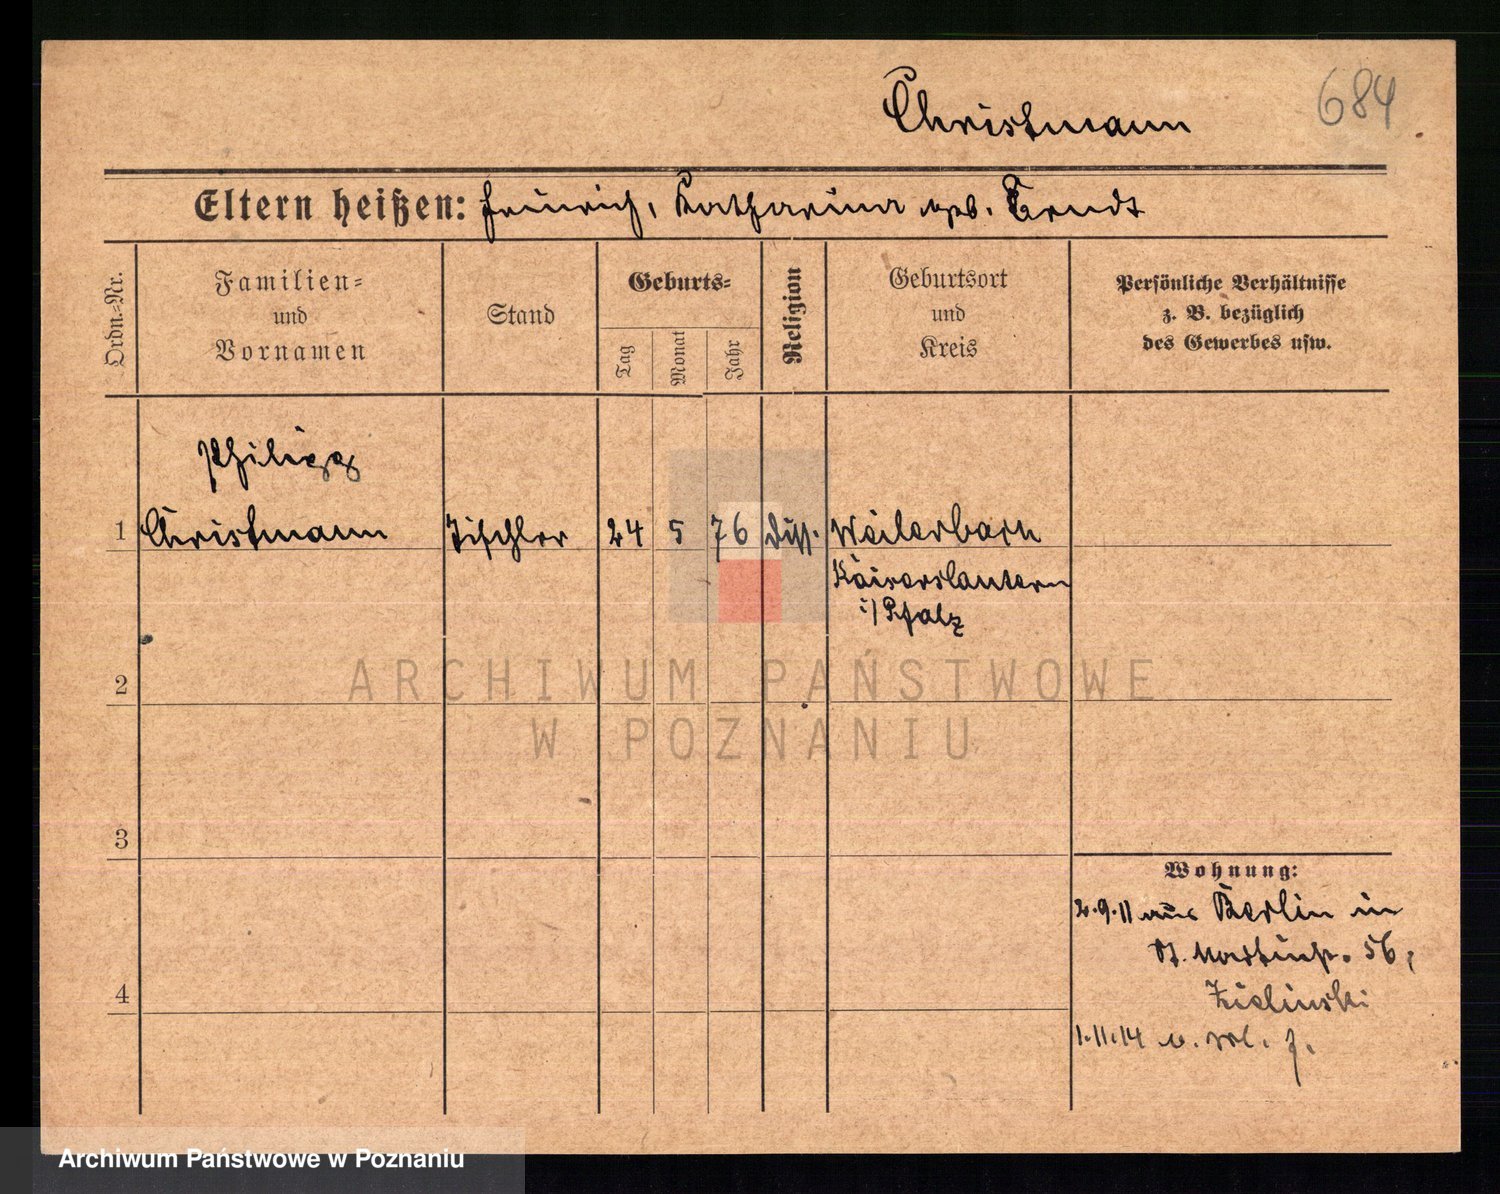 Christmann
684
Eltern heißen: Heinrich, Katharina geb. Arndt
Ordn.=Nr.
Familien=
und
Vornamen
Stand
Geburts=
Tag
Monat
Jahr
Religion
Geburtsort
und
Kreis
Persönliche Verhältnisse
z. B. bezüglich
des Gewerbes usw.
Philipp
1 Christmann Tischler 24 5 76 Diss. Weilerbach
Kaiserslautern
i/Pfalz
2
ARCHIWUM PAŃSTWOWE
W POZNANIU
3
Wohnung:
2.9.11 aus Berlin in
St. Martinstr. 56,
Zielinski
4
1.11.14
Archiwum Państwowe w Poznaniu